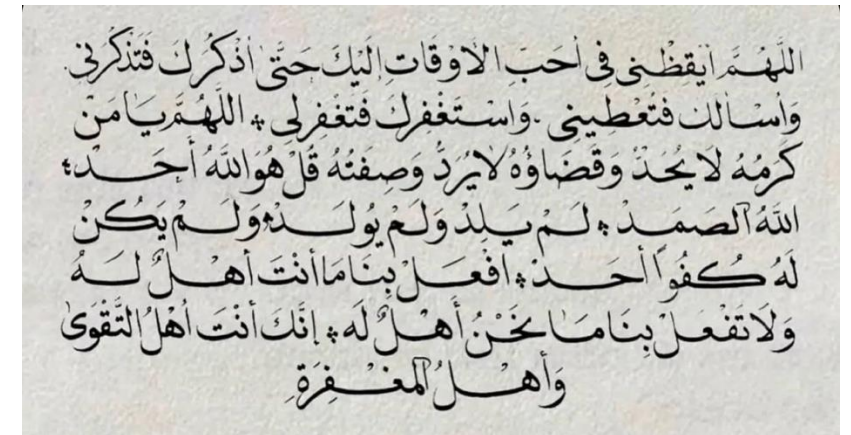 اللَّهُمَّ أَيْقِظْنِي فِي أَحَبِّ الْأَوْقَاتِ إِلَيْكَ حَتَّى أَذْكُرَكَ فَتَذْكُرَنِي
وَأَسْأَلَكَ فَتُعْطِيَنِي وَاسْتَغْفِرَكَ فَتَغْفِرَلِي اللَّهُمَّ يَا مَنْ
كَرَمُهُ لَا يُحَدُّ وَقَضَاؤُهُ لَا يُرَدُّ وَصِفَتُهُ قُلْ هُوَ اللَّهُ أَحَدْ
اللَّهُ الصَّمَدْ لَمْ يَلِدْ وَلَمْ يُولَدْ وَلَمْ يَكُنْ
لَهُ كُفُوًا أَحَدْ افْعَلْ بِنَا مَا أَنْتَ أَهْلٌ لَهُ
وَلَا تَفْعَلْ بِنَا مَا نَحْنُ أَهْلٌ لَه إِنَّكَ أَنْتَ أَهْلُ التَّقْوَى
وَأَهْلُ الْمَغْفِرَةِ